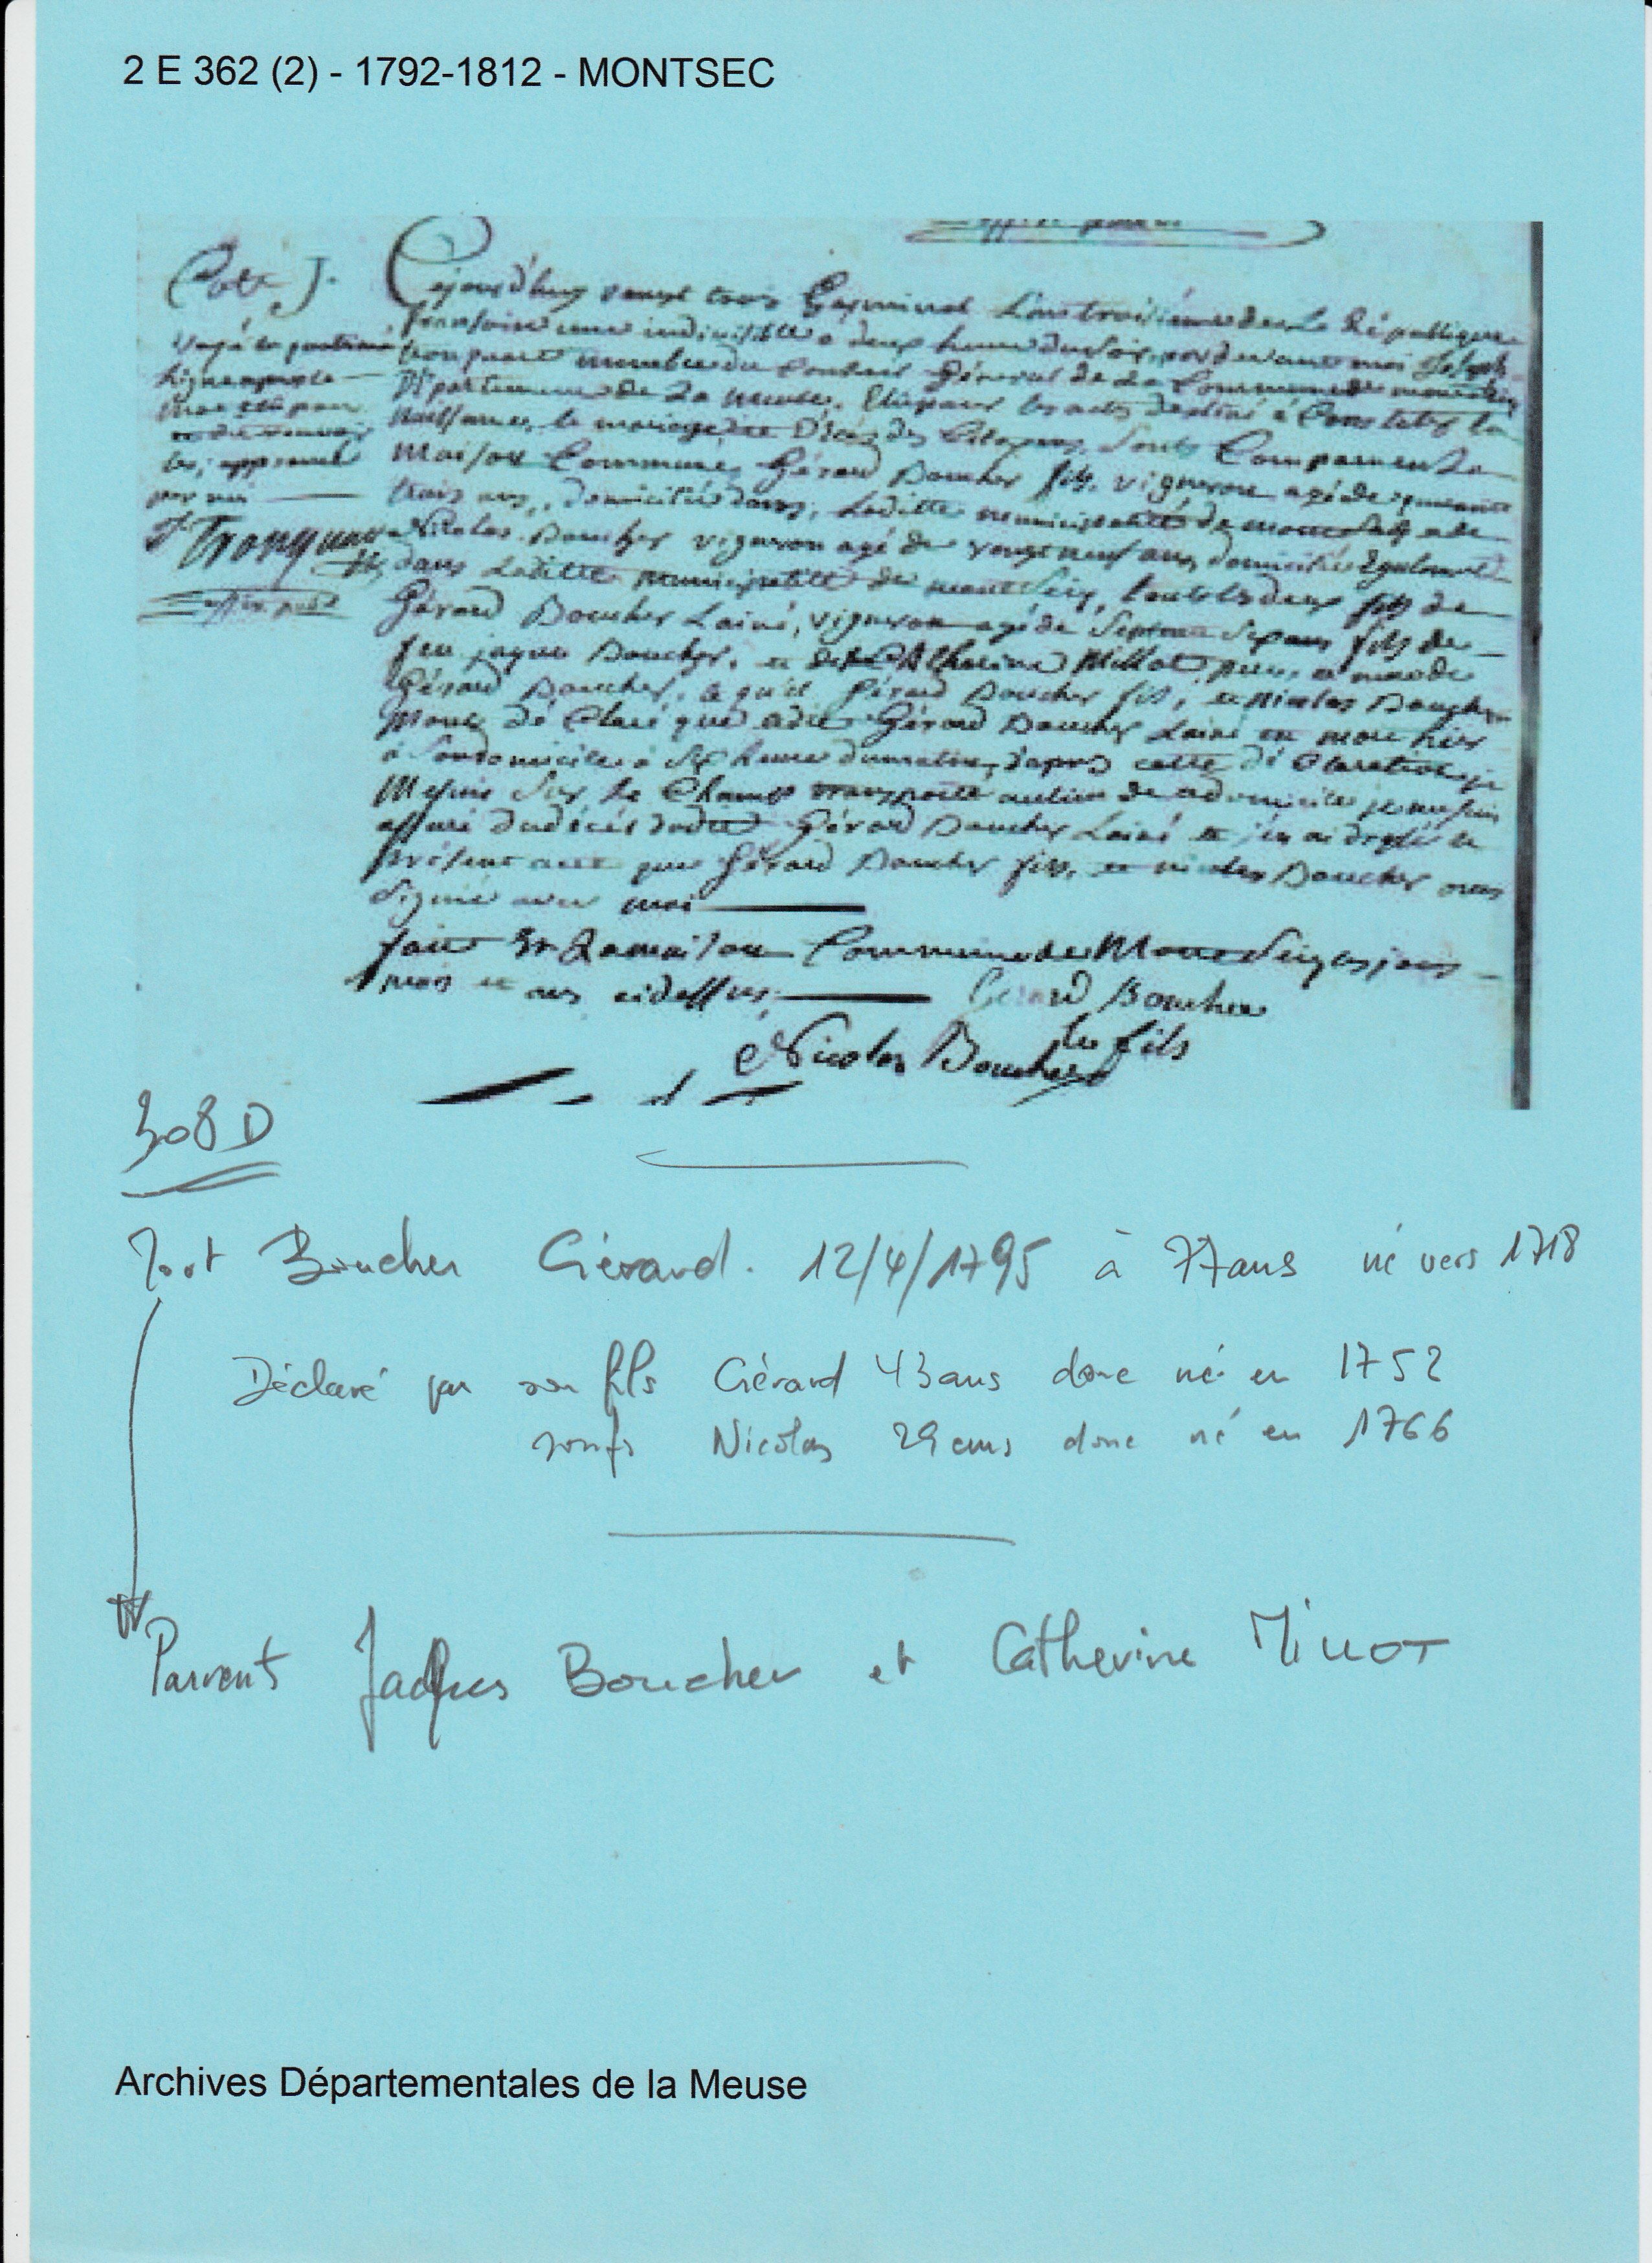 2 E 362 (2) - 1792-1812 - MONTSEC
Cote J.
Cejourd'huy vengt trois Germinal L'an troisieme de La République
francoise une indivisible a deux heure du soir, par devant moi Joseph
tronquart membre du Conseil Général de La Commune de
Département de La meuse, Elu pour les actes destiné à Constater la
naissance, le mariage et Décès des Citoyens, sont Comparu en La
Maison Commune, Gérard Boucher fils, vigneron agé de quarante
trois ans, domicilié dans, Laditte municipalité de
Nicolas Boucher vigneron agé de vengt neuf ans, domicilié Egalement
dans Laditte municipalité de montSeiq, tout les deux fils de
Gérard Boucher Lainé, vigneron agé de Septente Sept ans fils de
feu jaque Boucher, et de Catherine Millot, pere, et mere de
Gérard Boucher, le qu'el Gérard Boucher fils, et Nicolas Boucher
Mont dé Claré que ledit Gérard Boucher Lainé est mort hier
à Son domicile à Sept heure du matin, d'apres cette dé Claration je
Me suis Sur le Champ transporté au lieu de ce domicile je me suis
assuré du décès dudit Gérard Boucher Lainé et j'en ai dressé le
présent acte que Gérard Boucher fils, et nicolas Boucher ont
Signé avec moi
fait En La maison Commune de MontSeiq les jour
mois et an cidessus,
Gerard Boucher
le fils
Nicolas Boucher
approuvé
par moi
J Tronquart
308 D
Mort Boucher Gérard. 12/4/1795 à 77 ans né vers 1718
Déclaré par son fils Gérard 43 ans donc né en 1752
son fs Nicolas 29 ans donc né en 1766
Parents Jacques Boucher et Catherine MILLOT
Archives Départementales de la Meuse